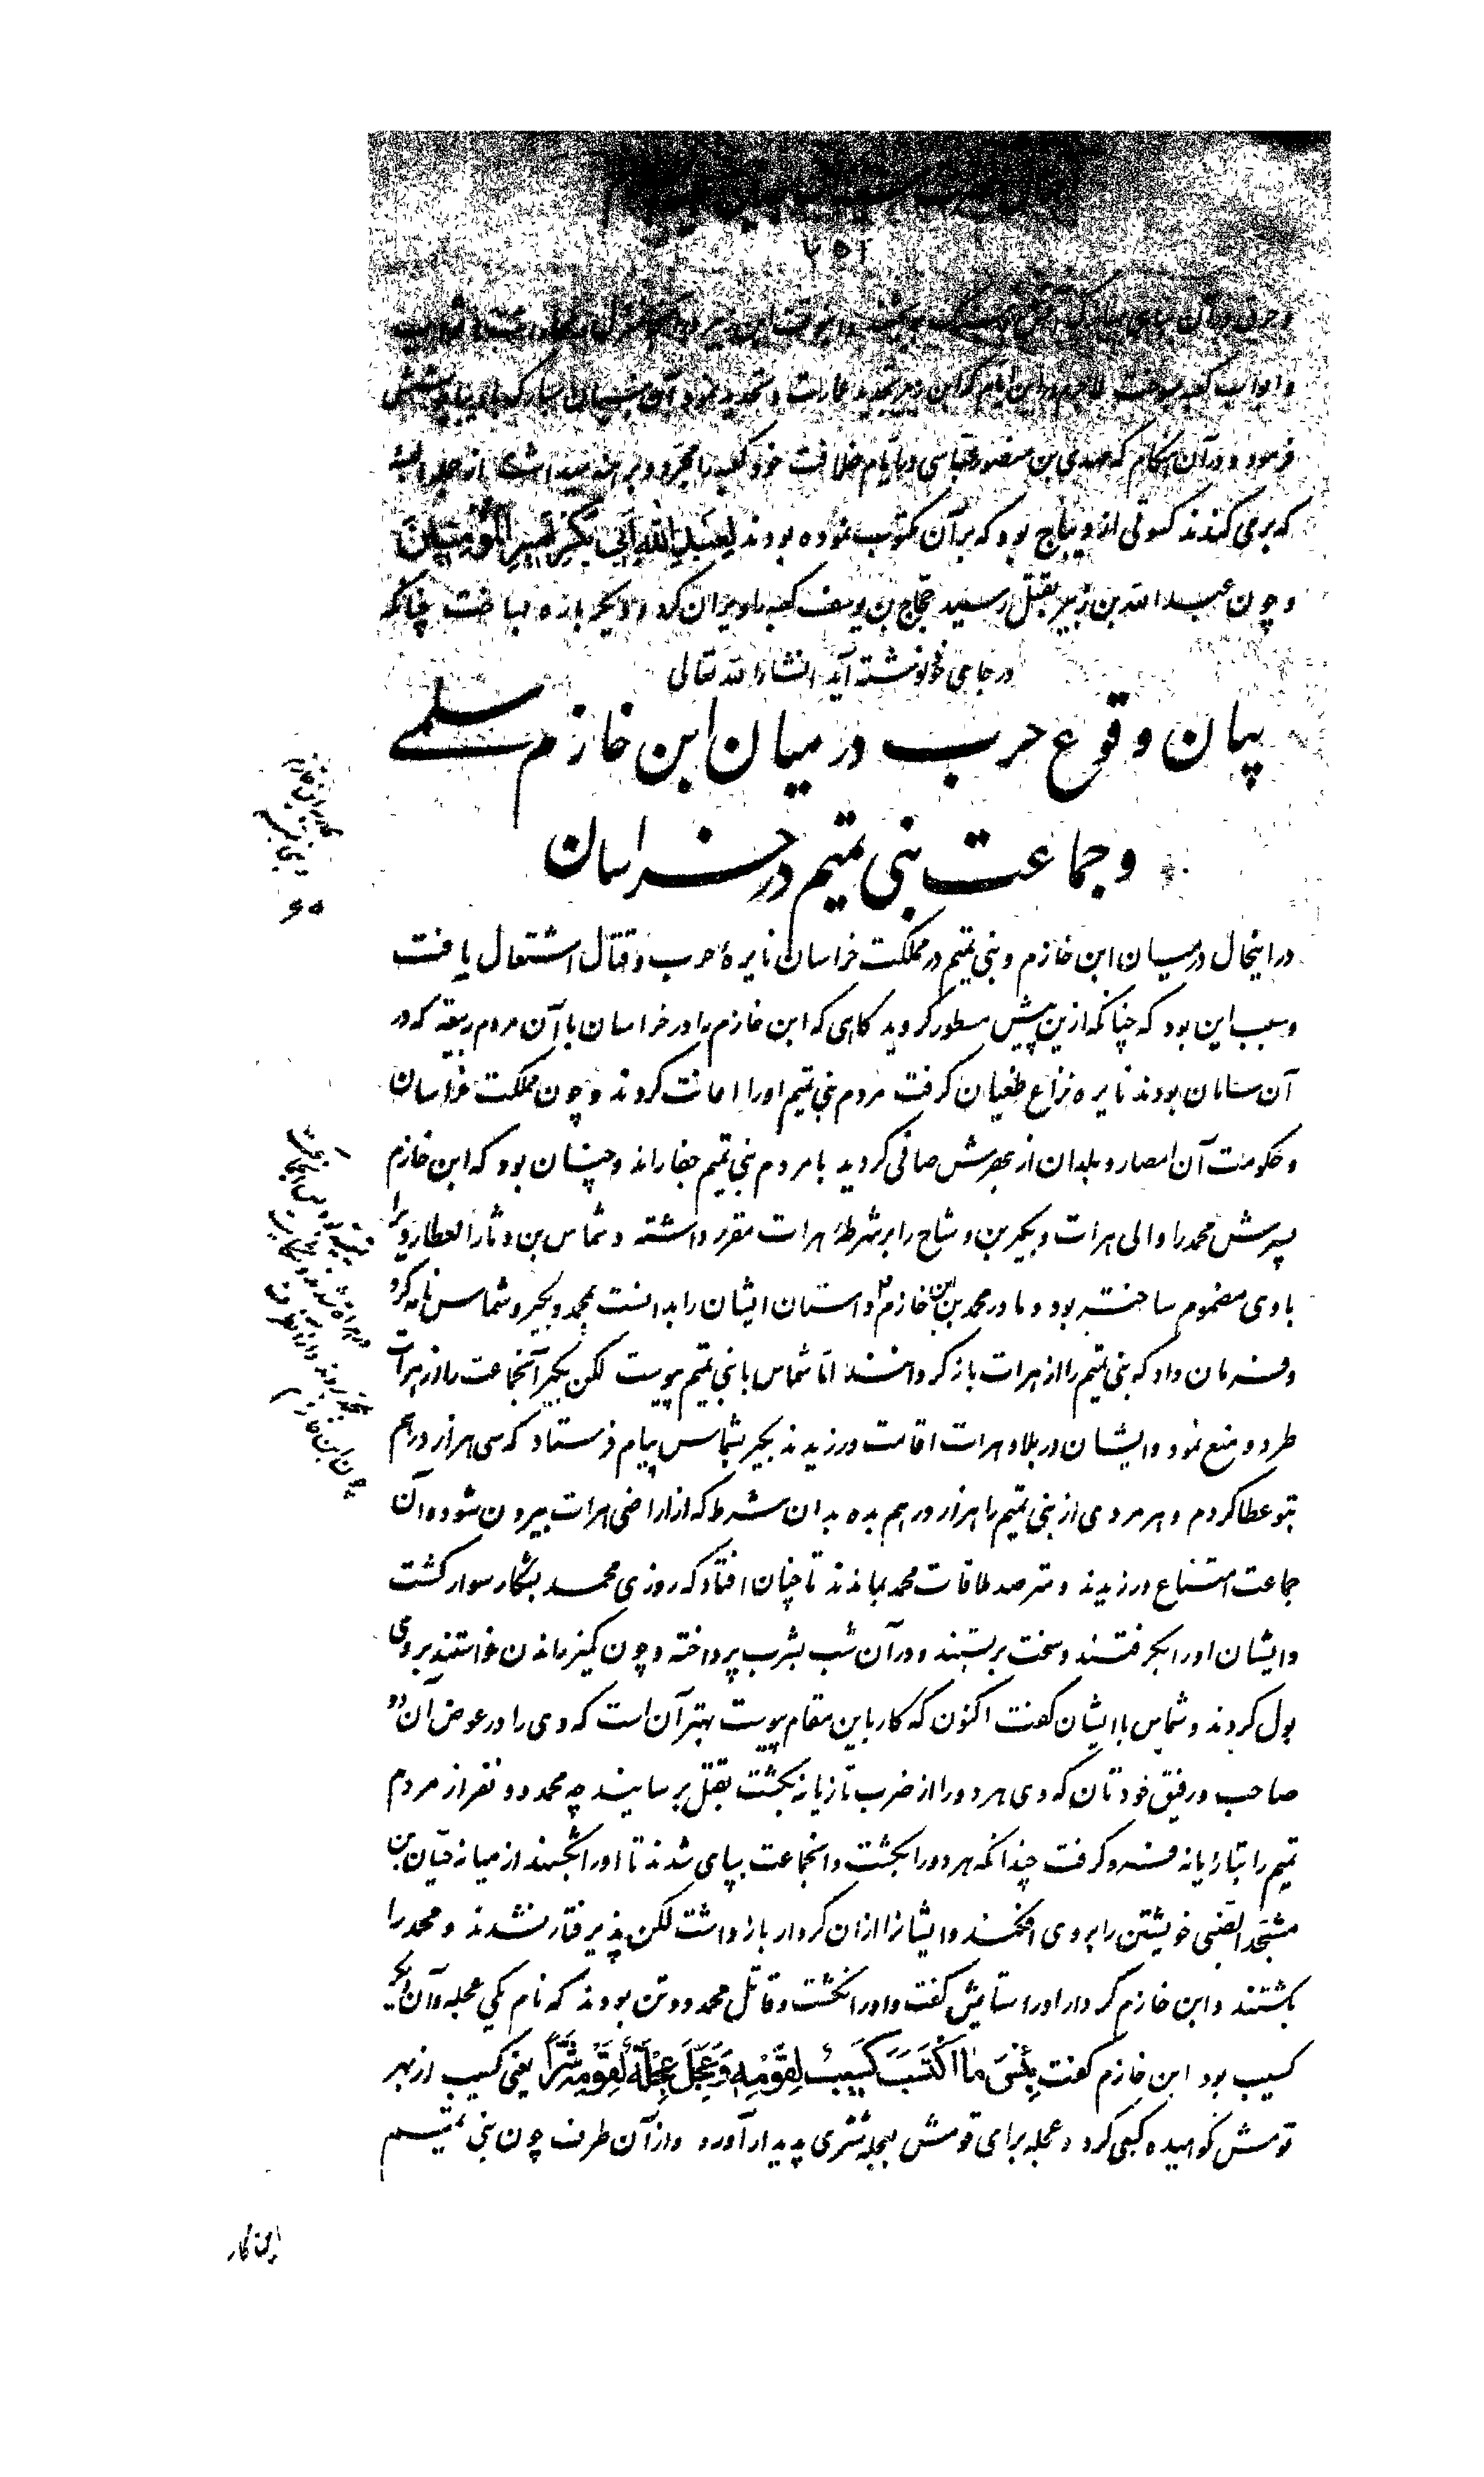 ۲۵۲
و ابواب کعبه بسوخت لاجرم در این ایام که ابن زبیر تجدید عمارت و تحدید نمود
فرمود و در آن هنگام که مهدی بن منصور عباسی در ایام خلافت خود کعبه را مجرد و برهنه میداشت از جمله البسه
که بر می کندند کسوتی از دیباج بود که بر آن مکتوب نموده بودند لِعَبدِ اللهِ اَبی بَکرٍ اَمیرِ المُؤمِنینَ
و چون عبد الله بن زبیر بقتل رسید حجاج بن یوسف کعبه را ویران کرد و دیگر باره بساخت چنانکه
در جای خود نوشته آید انشاء الله تعالی
بیان وقوع حرب در میان ابن خازم سلمی
و جماعت بنی تمیم در خراسان
در اینحال در میان ابن خازم و بنی تمیم در مملکت خراسان نایرهٔ حرب و قتال اشتعال یافت
و سبب این بود که چنانکه ازین پیش مسطور گردید گاهی که ابن خازم را در خراسان با آن مردم ربیعه که در
آن سامان بودند نایره نزاع طغیان گرفت مردم بنی تمیم او را اعانت کردند و چون مملکت خراسان
و حکومت آن امصار و بلدان از بهرش صافی گردید با مردم بنی تمیم جفا راند و چنان بود که ابن خازم
پسرش محمد را والی هرات و بکیر بن وشاح را بر شرطهٔ هرات مقرر داشته و شماس بن دثار العطاردی را
با وی مضموم ساخته بود و مادر محمد بن ابن خازم داستان ایشان را بدانست بمحمد و بکیر و شماس نامه کرد
و فرمان داد که بنی تمیم را از هرات باز گردانند اما شماس با بنی تمیم پیوست لکن بکیر آنجماعت را از هرات
طرد و منع نمود و ایشان در بلاد هرات اقامت ورزیدند بکیر بشماس پیام فرستاد که سی هزار درهم
بتو عطا کردم و هر مردی از بنی تمیم را هزار درهم بده بدان شرط که از اراضی هرات بیرون شود و آن
جماعت امتناع ورزیدند و مترصد ملاقات محمد بماندند تا چنان افتاد که روزی محمد بشکار سوار گشت
و ایشان او را بگرفتند و سخت بربستند و در آن شب بشرب پرداخته و چون کمیز راندن خواستند بر وی
بول کردند و شماس با ایشان گفت اکنون که کار باین مقام پیوست بهتر آن است که وی را در عوض آن دو
صاحب و رفیق خودتان که وی هر دو را از ضرب تازیانه بکشت بقتل برسانید چه محمد دو نفر از مردم
تمیم را بتازیانه فرو گرفت چندانکه هر دو را بکشت و آنجماعت بپای شدند تا او را بکشند از میانه حیان بن
مشجعه الضبی خویشتن را بر وی افکند و ایشانرا ازان کردار باز داشت لکن پذیرفتار نشدند و محمد را
بکشتند و ابن خازم کردار او را ستایش گفت و او را نکشت و قاتل محمد دو تن بودند که نام یکی عجله و آن دیگر
کسیب بود ابن خازم گفت بِئسَ مَا اکتَسَبَ کُسَیبُ لِقَومِهِ وَ عَجَّلَ عَجَلَةُ لِقَومِهِ شَرًّا یعنی کسیب از بهر
قومش نکوهیده کسبی کرد و عجله برای قومش بعجله شری پدیدار آورد و از آن طرف چون بنی تمیم
این کار